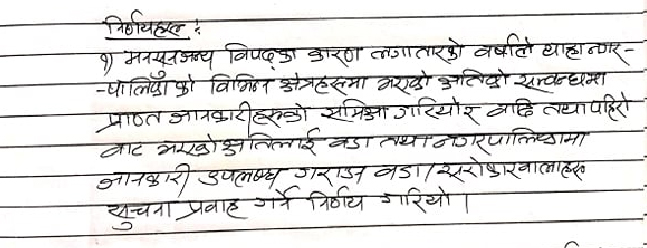 निर्णयहरु :
१) मनसुनजन्य विपदका कारण लगातारको वर्षाले यहा नगर-
-पालिका को विभिन्न क्षेत्रहरुमा भएको क्षतिको सम्बन्धमा
प्राप्त जानकारीहरुको समिक्षा गरियो र बाढि तथा पहिरो
बाट भएको क्षतिलाई वडा तथा नगरपालिकामा
जानकारी उपलब्ध गराउन वडा/सरोकारवालाहरु
सुचना प्रवाह गर्ने निर्णय गरियो ।